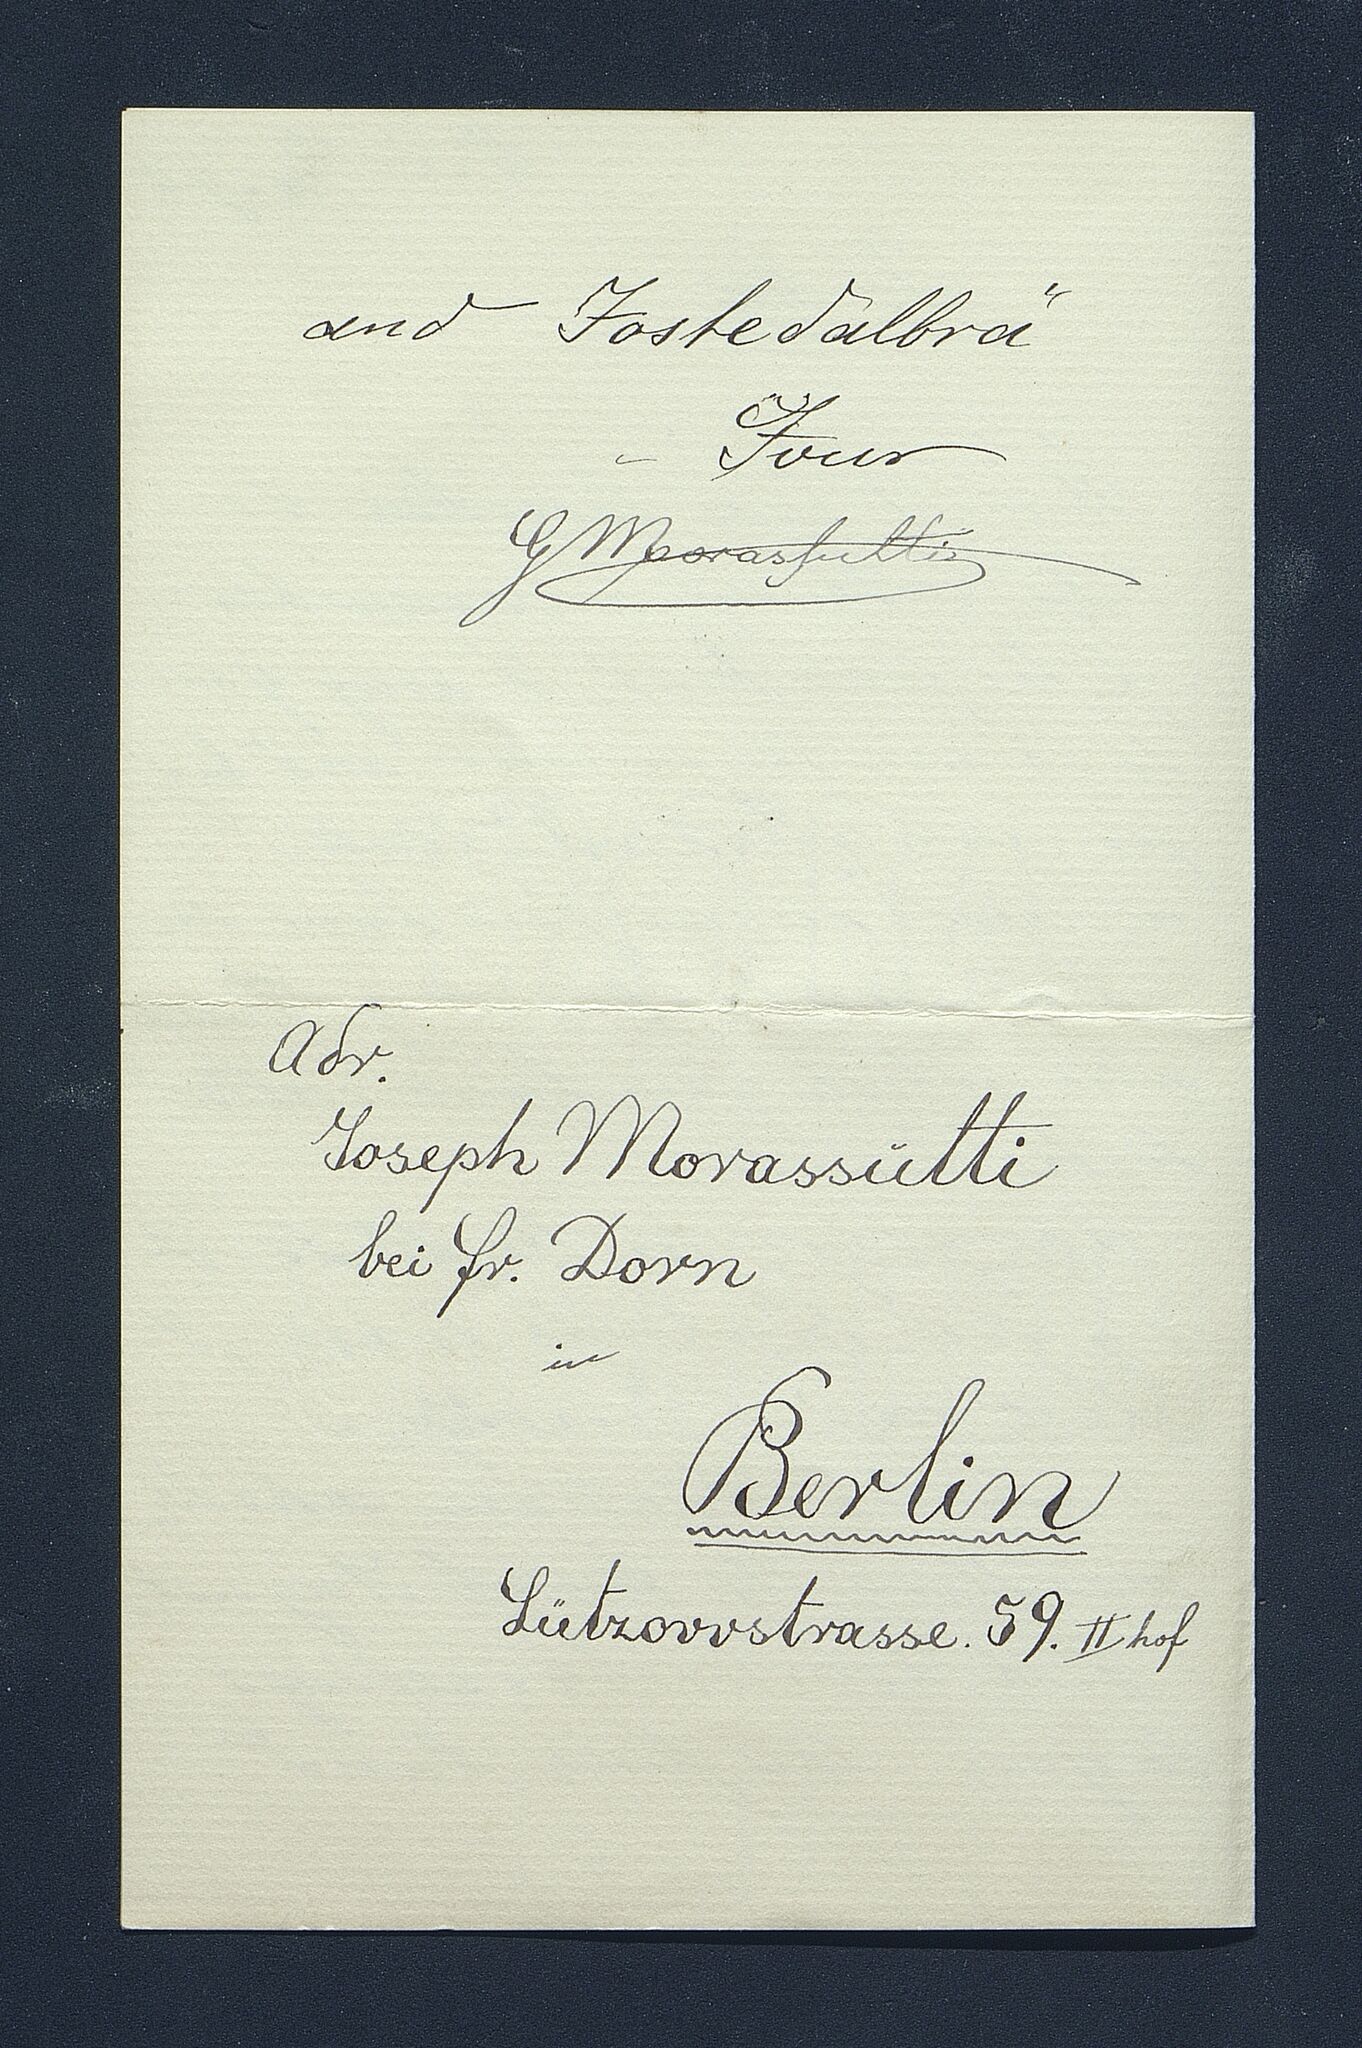 and Jostedalbrä
- Your
G Morassutti
Adr.
Joseph Morassütti
bei Fr. Dorn
in
Berlin
Lützowstrasse. 59. II hof